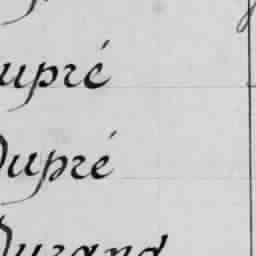 Dupré
Dupré
Durand